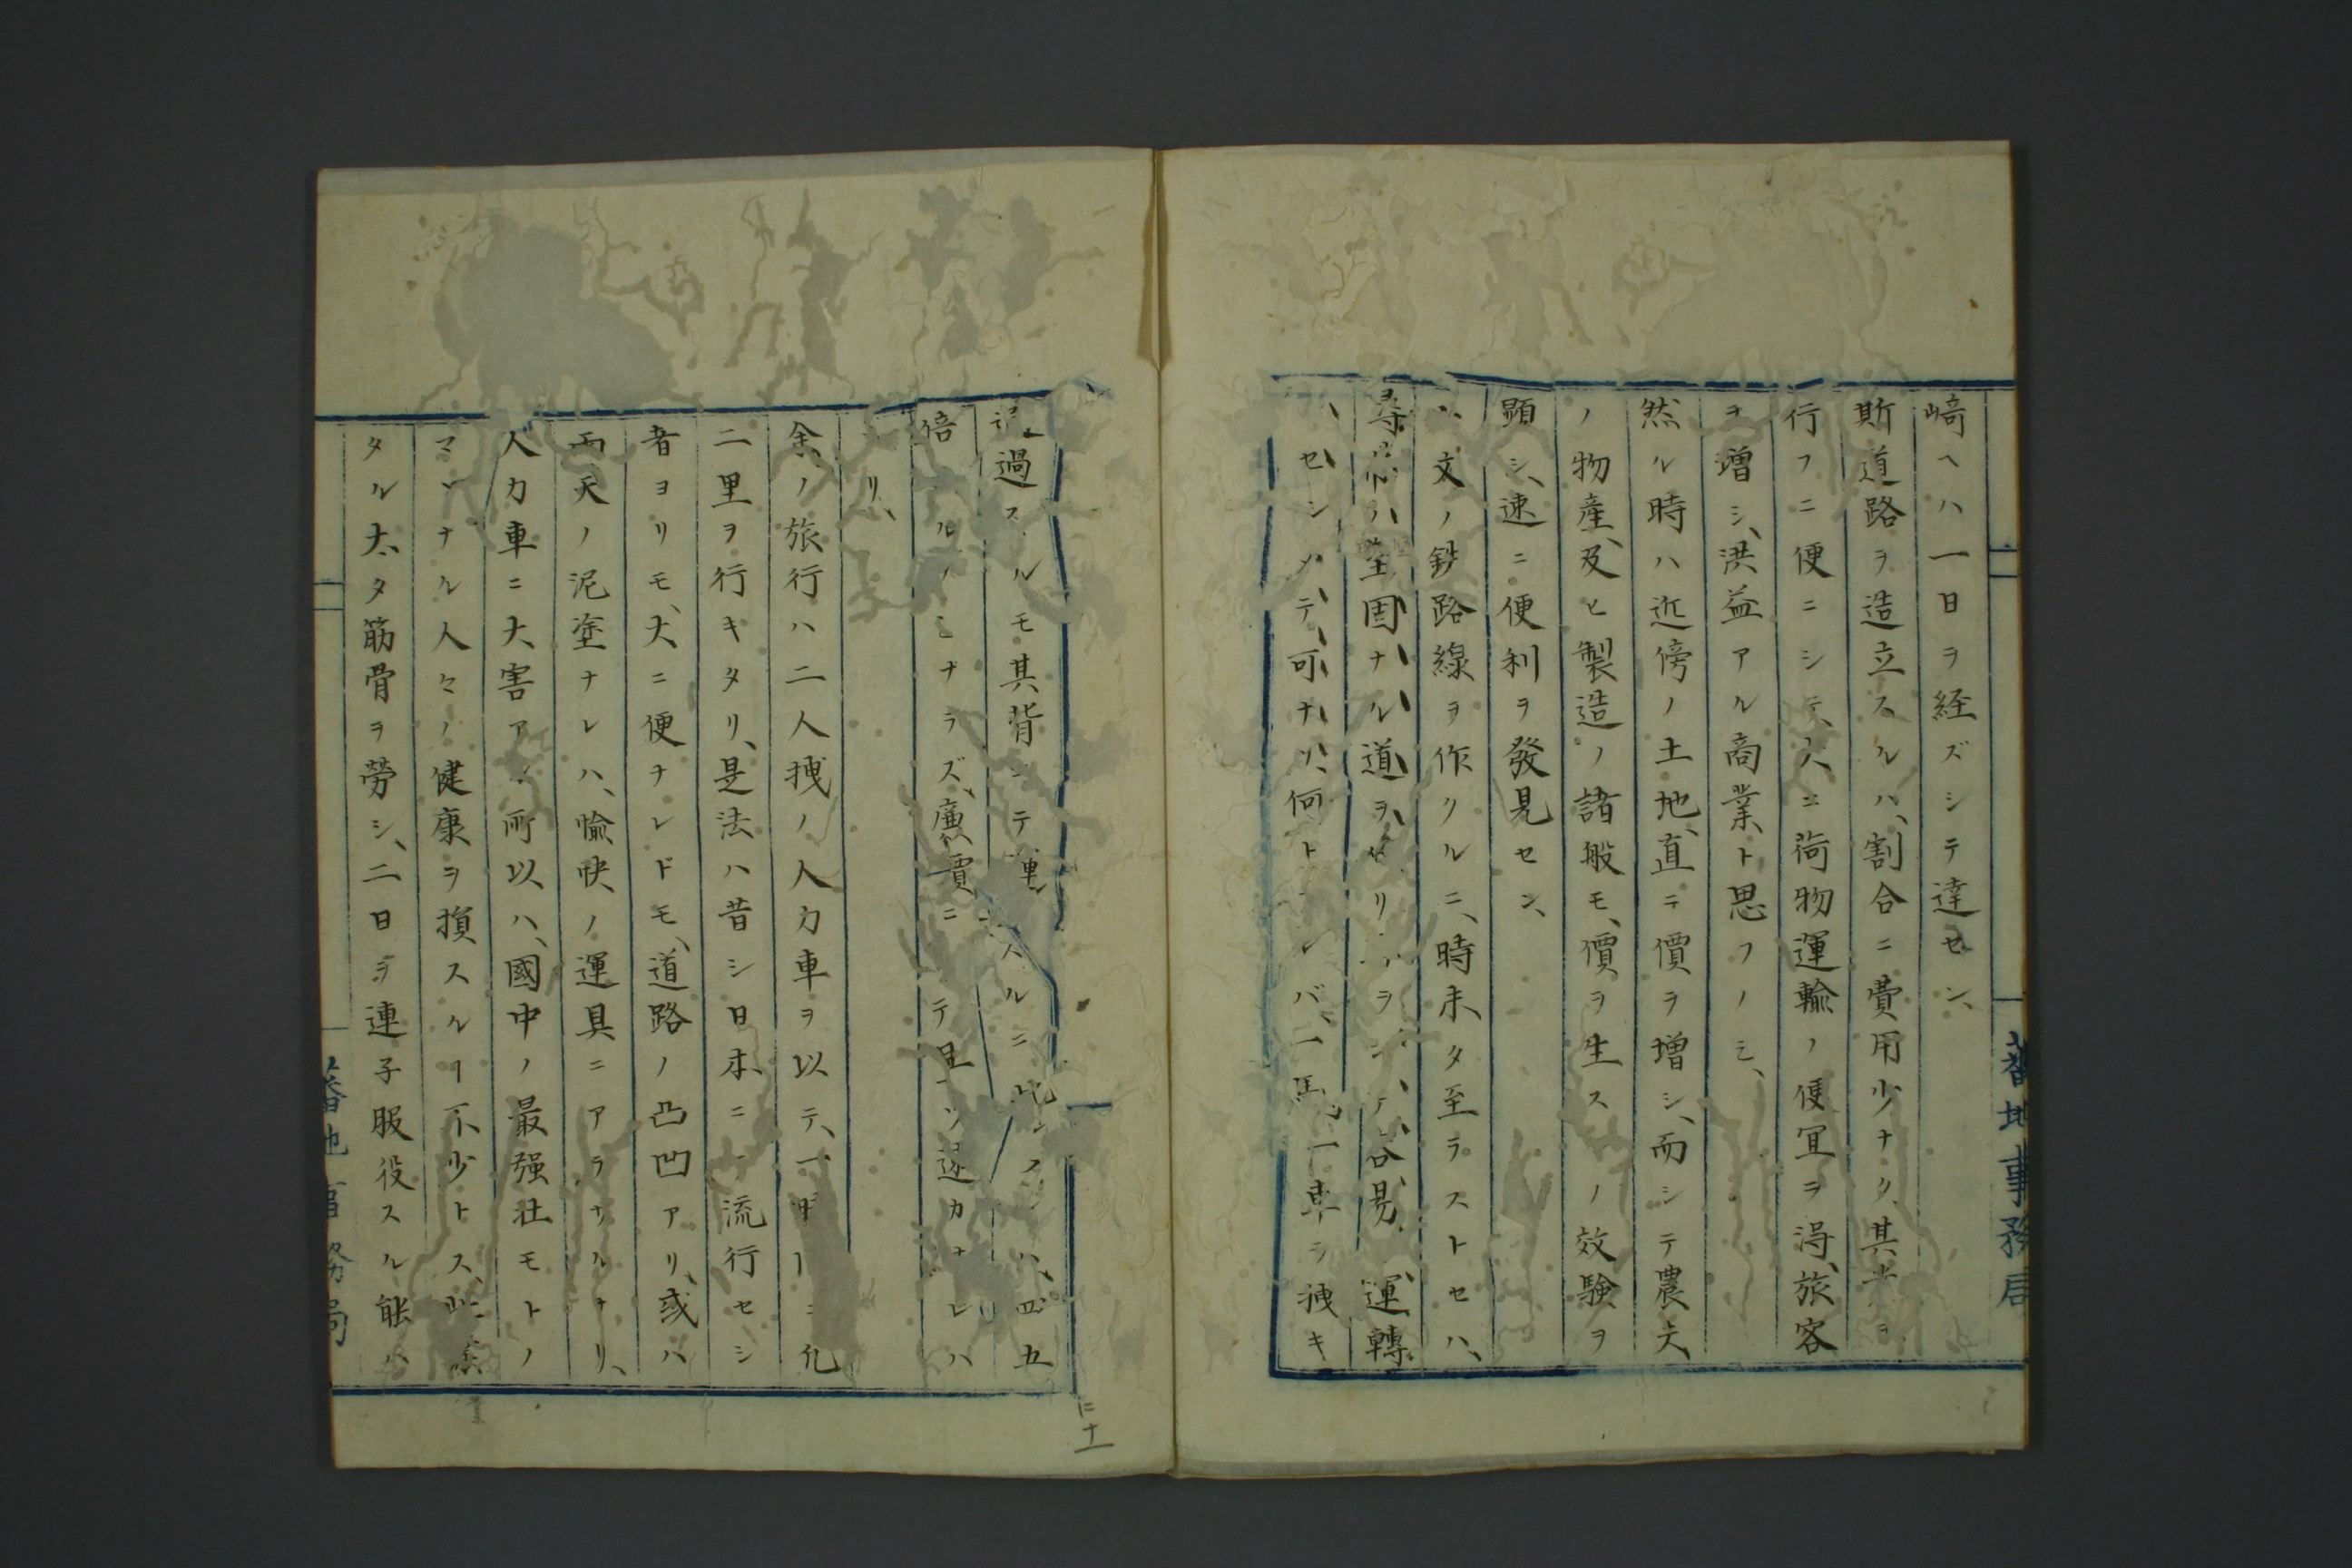 蕃地事務局
崎ヘハ一日ヲ経ズシテ達セン、
斯道路ヲ造立スルハ、割合ニ費用少ナク、其半ヲ
行フニ便ニシテ、大ニ荷物運輸ノ便宜ヲ得、旅客
ヲ増シ、洪益アル商業ト思フノミ、
然ル時ハ近傍ノ土地、直ニ價ヲ増シ、而シテ農夫
ノ物産、及ヒ製造ノ諸般モ、價ヲ生スノ效験ヲ
顕シ、速ニ便利ヲ發見セン、
文ノ鉄路線ヲ作クルニ、時未タ至ラストセハ、
尋常ハ堅固ナル道ヲ 容易 運轉
セシメテ、可ナリ、何ト レバ、一馬、一車ヲ挽キ
過スルモ其背ニテ運 スルニ比 ハ、四五
倍 ナラズ、廉價ニ テ且ツ速カナレハ
リ、
余ノ旅行ハ二人挽ノ人力車ヲ以テ、一時 ニ九
二里ヲ行キタリ、是法ハ昔シ日本ニ 流行セシ
者ヨリモ、大ニ便ナレドモ、道路ノ凸凹アリ、或ハ
雨天ノ泥塗ナレハ、愉快ノ運具ニアラサルナリ、
人力車ニ大害ア 所以ハ、國中ノ最强壮モトノ
ナル人々ノ健康ヲ損スルヿ不少トス、此
タル太タ筋骨ヲ勞シ、二日ヲ連子服役スル能ハ
蕃地事務局
二十